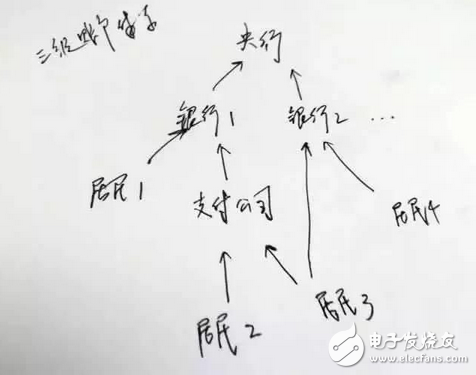 三级账户体系
央行
银行1
银行2 ...
居民1
支付公司
居民4
居民2
居民3
电子发烧友
www.elecfans.com